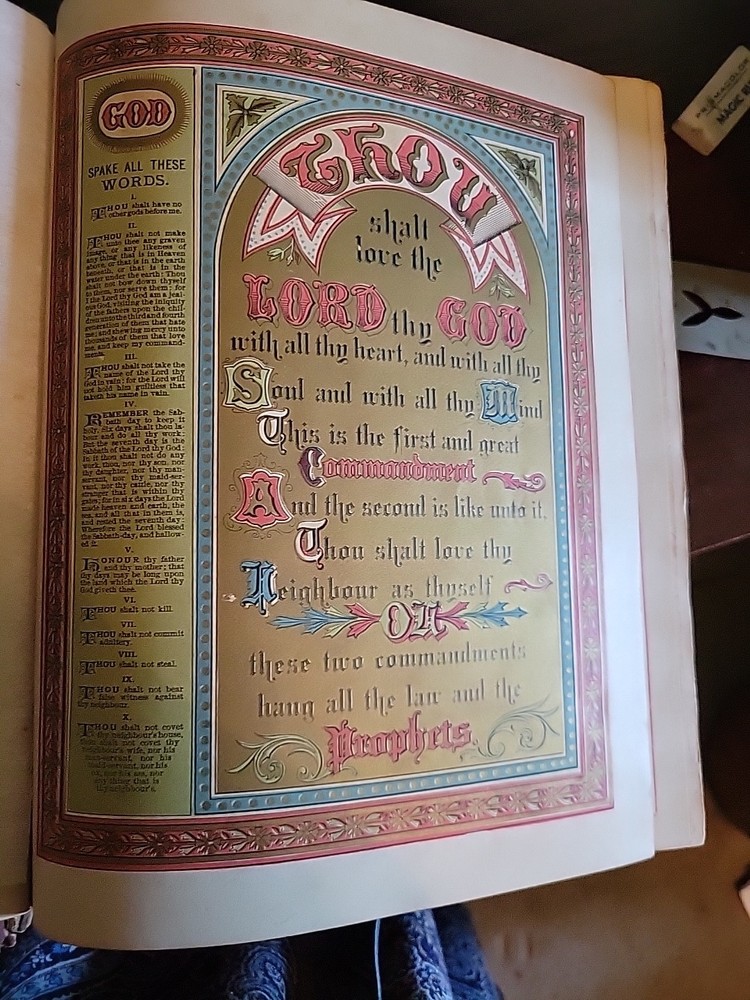 GOD
SPAKE ALL THESE
WORDS.
I.
THOU shalt have no
other gods before me.
II.
THOU shalt not make
unto thee any graven
image, or any likeness of
any thing that is in Heaven
above, or that is in the earth
beneath, or that is in the
water under the earth: Thou
shalt not bow down thyself
to them, nor serve them: for
I the Lord thy God am a jeal-
ous God, visiting the iniquity
of the fathers upon the chil-
dren unto the third and fourth
generation of them that hate
me; and shewing mercy unto
thousands of them that love
me, and keep my command-
ments.
III.
THOU shalt not take the
name of the Lord thy
God in vain: for the Lord will
not hold him guiltless that
taketh his name in vain.
IV.
REMEMBER the Sab-
bath day to keep it
holy. Six days shalt thou la-
bour and do all thy work:
But the seventh day is the
Sabbath of the Lord thy God:
In it thou shalt not do any
work, thou, nor thy son, nor
thy daughter, nor thy man-
servant, nor thy maid-ser-
vant, nor thy cattle, nor thy
stranger that is within thy
gates; for in six days the Lord
made heaven and earth, the
sea, and all that in them is,
and rested the seventh day:
Wherefore the Lord blessed
the Sabbath-day, and hallow-
ed it.
V.
HONOUR thy father
and thy mother; that
thy days may be long upon
the land which the Lord thy
God giveth thee.
VI.
THOU shalt not kill.
VII.
THOU shalt not commit
adultery.
VIII.
THOU shalt not steal.
IX.
THOU shalt not bear
false witness against
thy neighbour.
X.
THOU shalt not covet
thy neighbour's house,
thou shalt not covet thy
neighbour's wife, nor his
man-servant, nor his
maid-servant, nor his
ox, nor his ass, nor
any thing that is
thy neighbour's.
Thou
shalt
love the
LORD thy GOD
with all thy heart, and with all thy
Soul and with all thy Mind
This is the first and great
Commandment
And the second is like unto it,
Thou shalt love thy
Neighbour as thyself
ON
these two commandments
hang all the law and the
Prophets
PRISMACOLOR
MAGIC